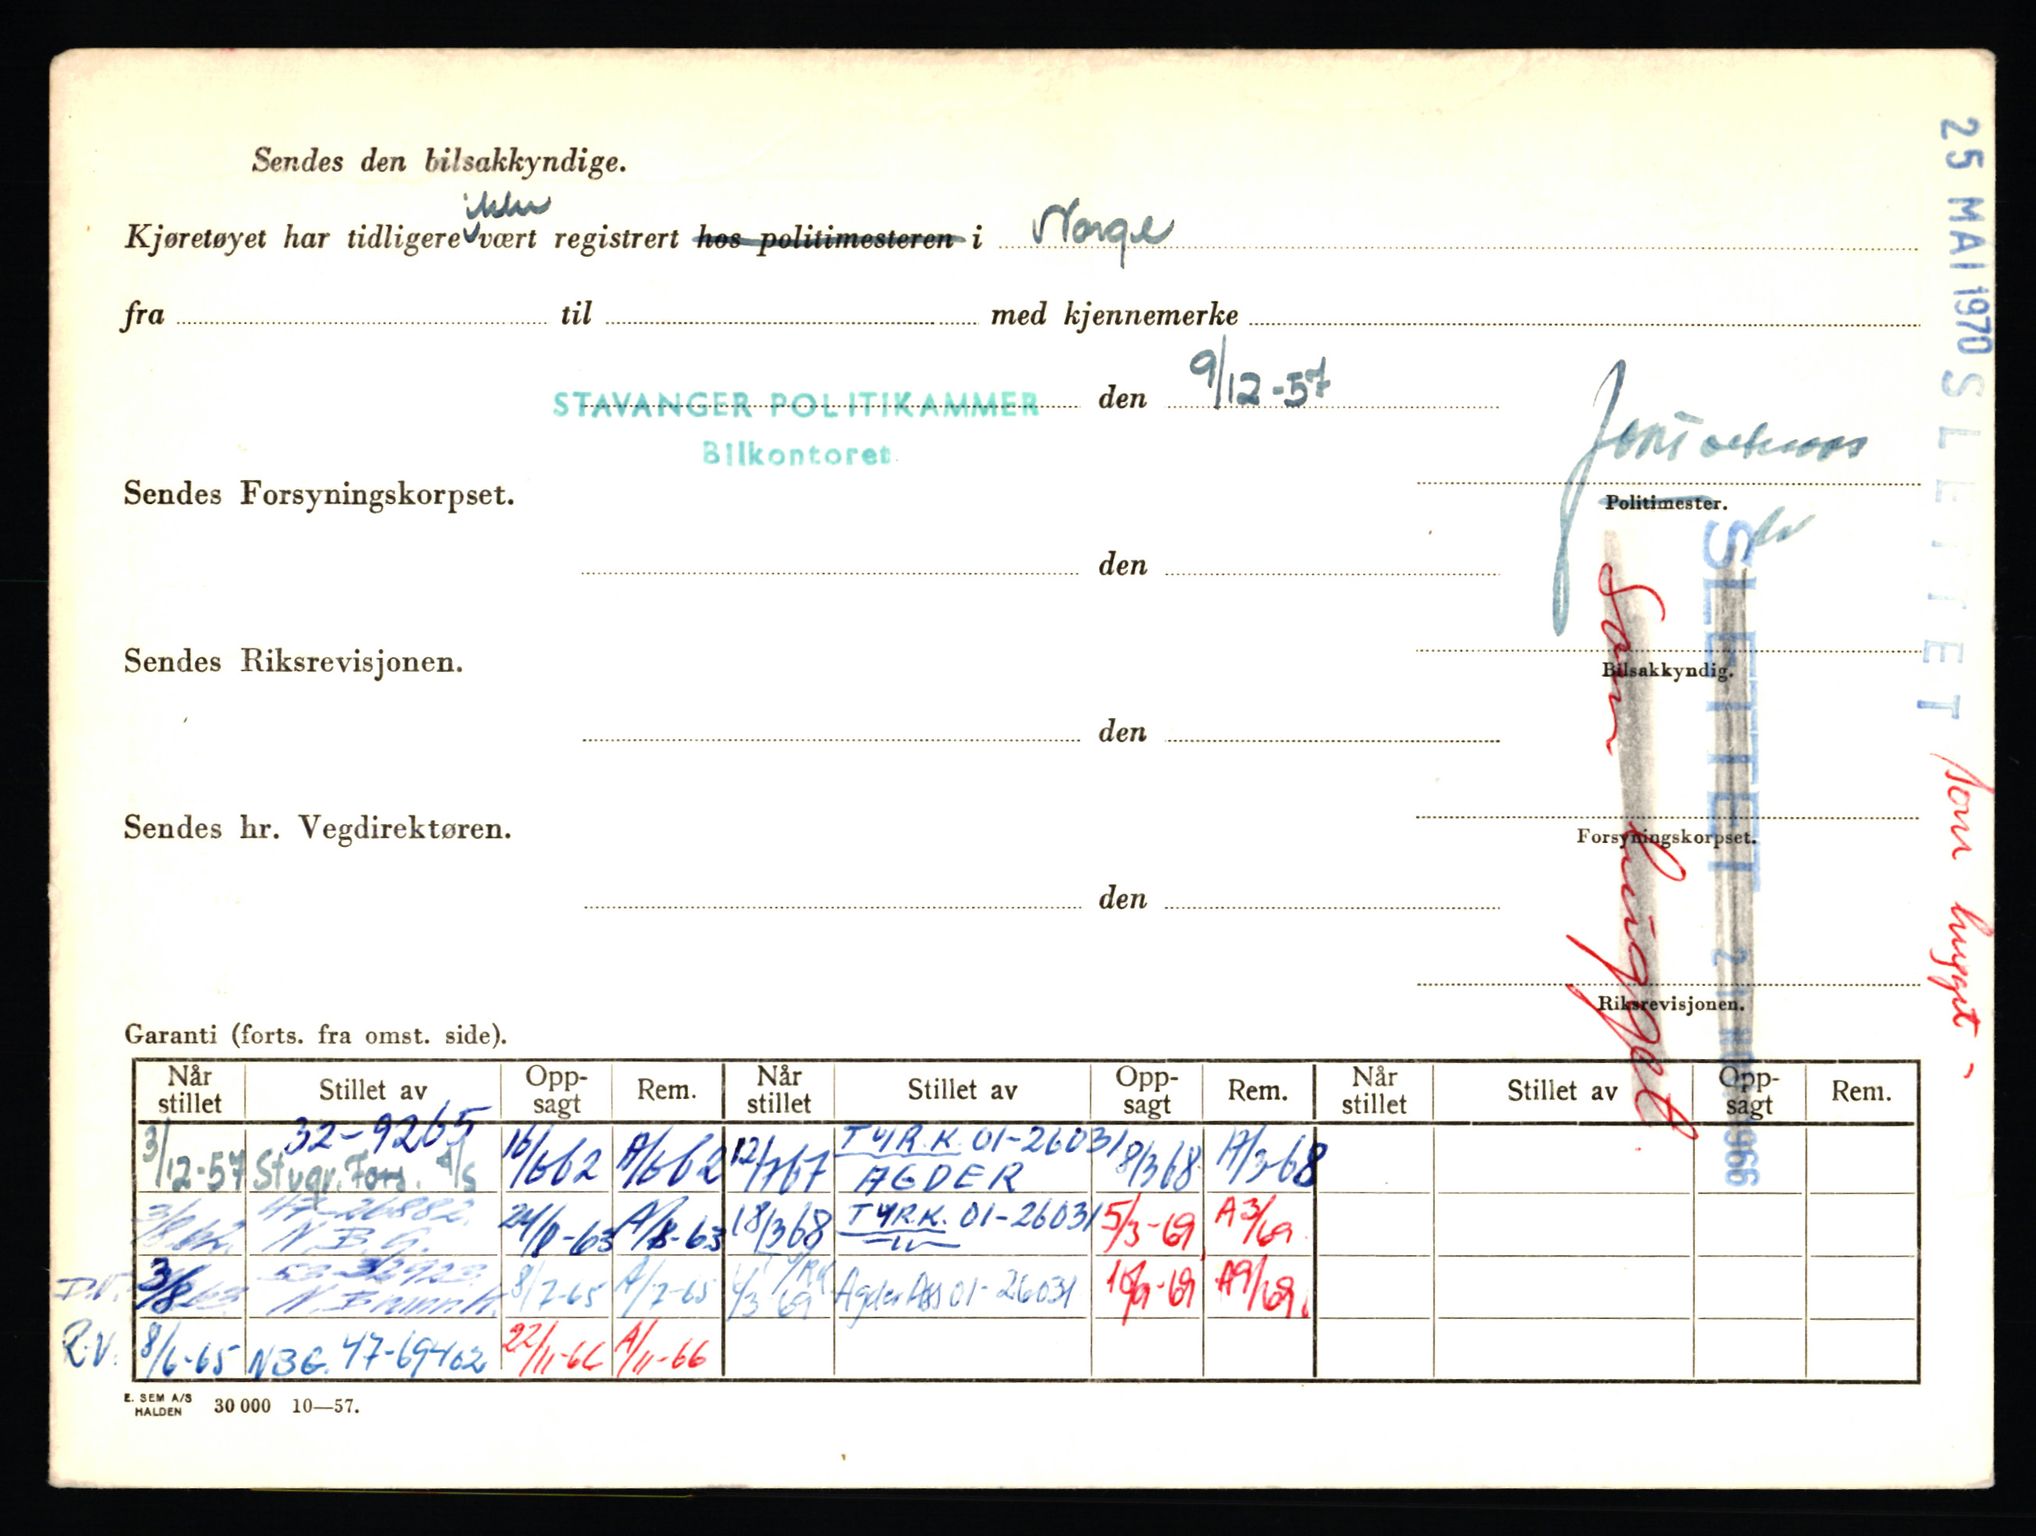 Sendes den bilsakkyndige.
ikke
Kjøretøyet har tidligere vært registrert hos politimesteren i Norge
fra til med kjennemerke
STAVANGER POLITIKAMMER den 9/12-57
Bilkontoret
Sendes Forsyningskorpset.
Politimester.
den
Sendes Riksrevisjonen.
Bilsakkyndig.
den
Sendes hr. Vegdirektøren.
Forsyningskorpset.
den
Riksrevisjonen.
25 MAI 1970 SLETTET som hugget
SLETTET 21 NOV 1966
Som hugget
Garanti (forts. fra omst. side).
Når stillet Stillet av Opp-sagt Rem. Når stillet Stillet av Opp-sagt Rem. Når stillet Stillet av Opp-sagt Rem.
32-9265 TYRK. 01-26031
3/12-57 Stvgr. Fors. A/S 16/6 62 A/6 62 12/7 67 AGDER 8/3 68 A/3 68
47-26882
N.B.G. 24/8-63 A/8-63 18/3 68 TYRK. 01-26031 5/3-69 A3/69
D.V. 3/8 63 N. Brannk. 8/7-65 A/7-65 4/3 69 Agder Ass 01-26031 10/9-69 A9/69
R.V. 8/6-65 NBG. 47-69462 22/11-66 A/11-66
E. SEM A/S
HALDEN 30 000 10—57.